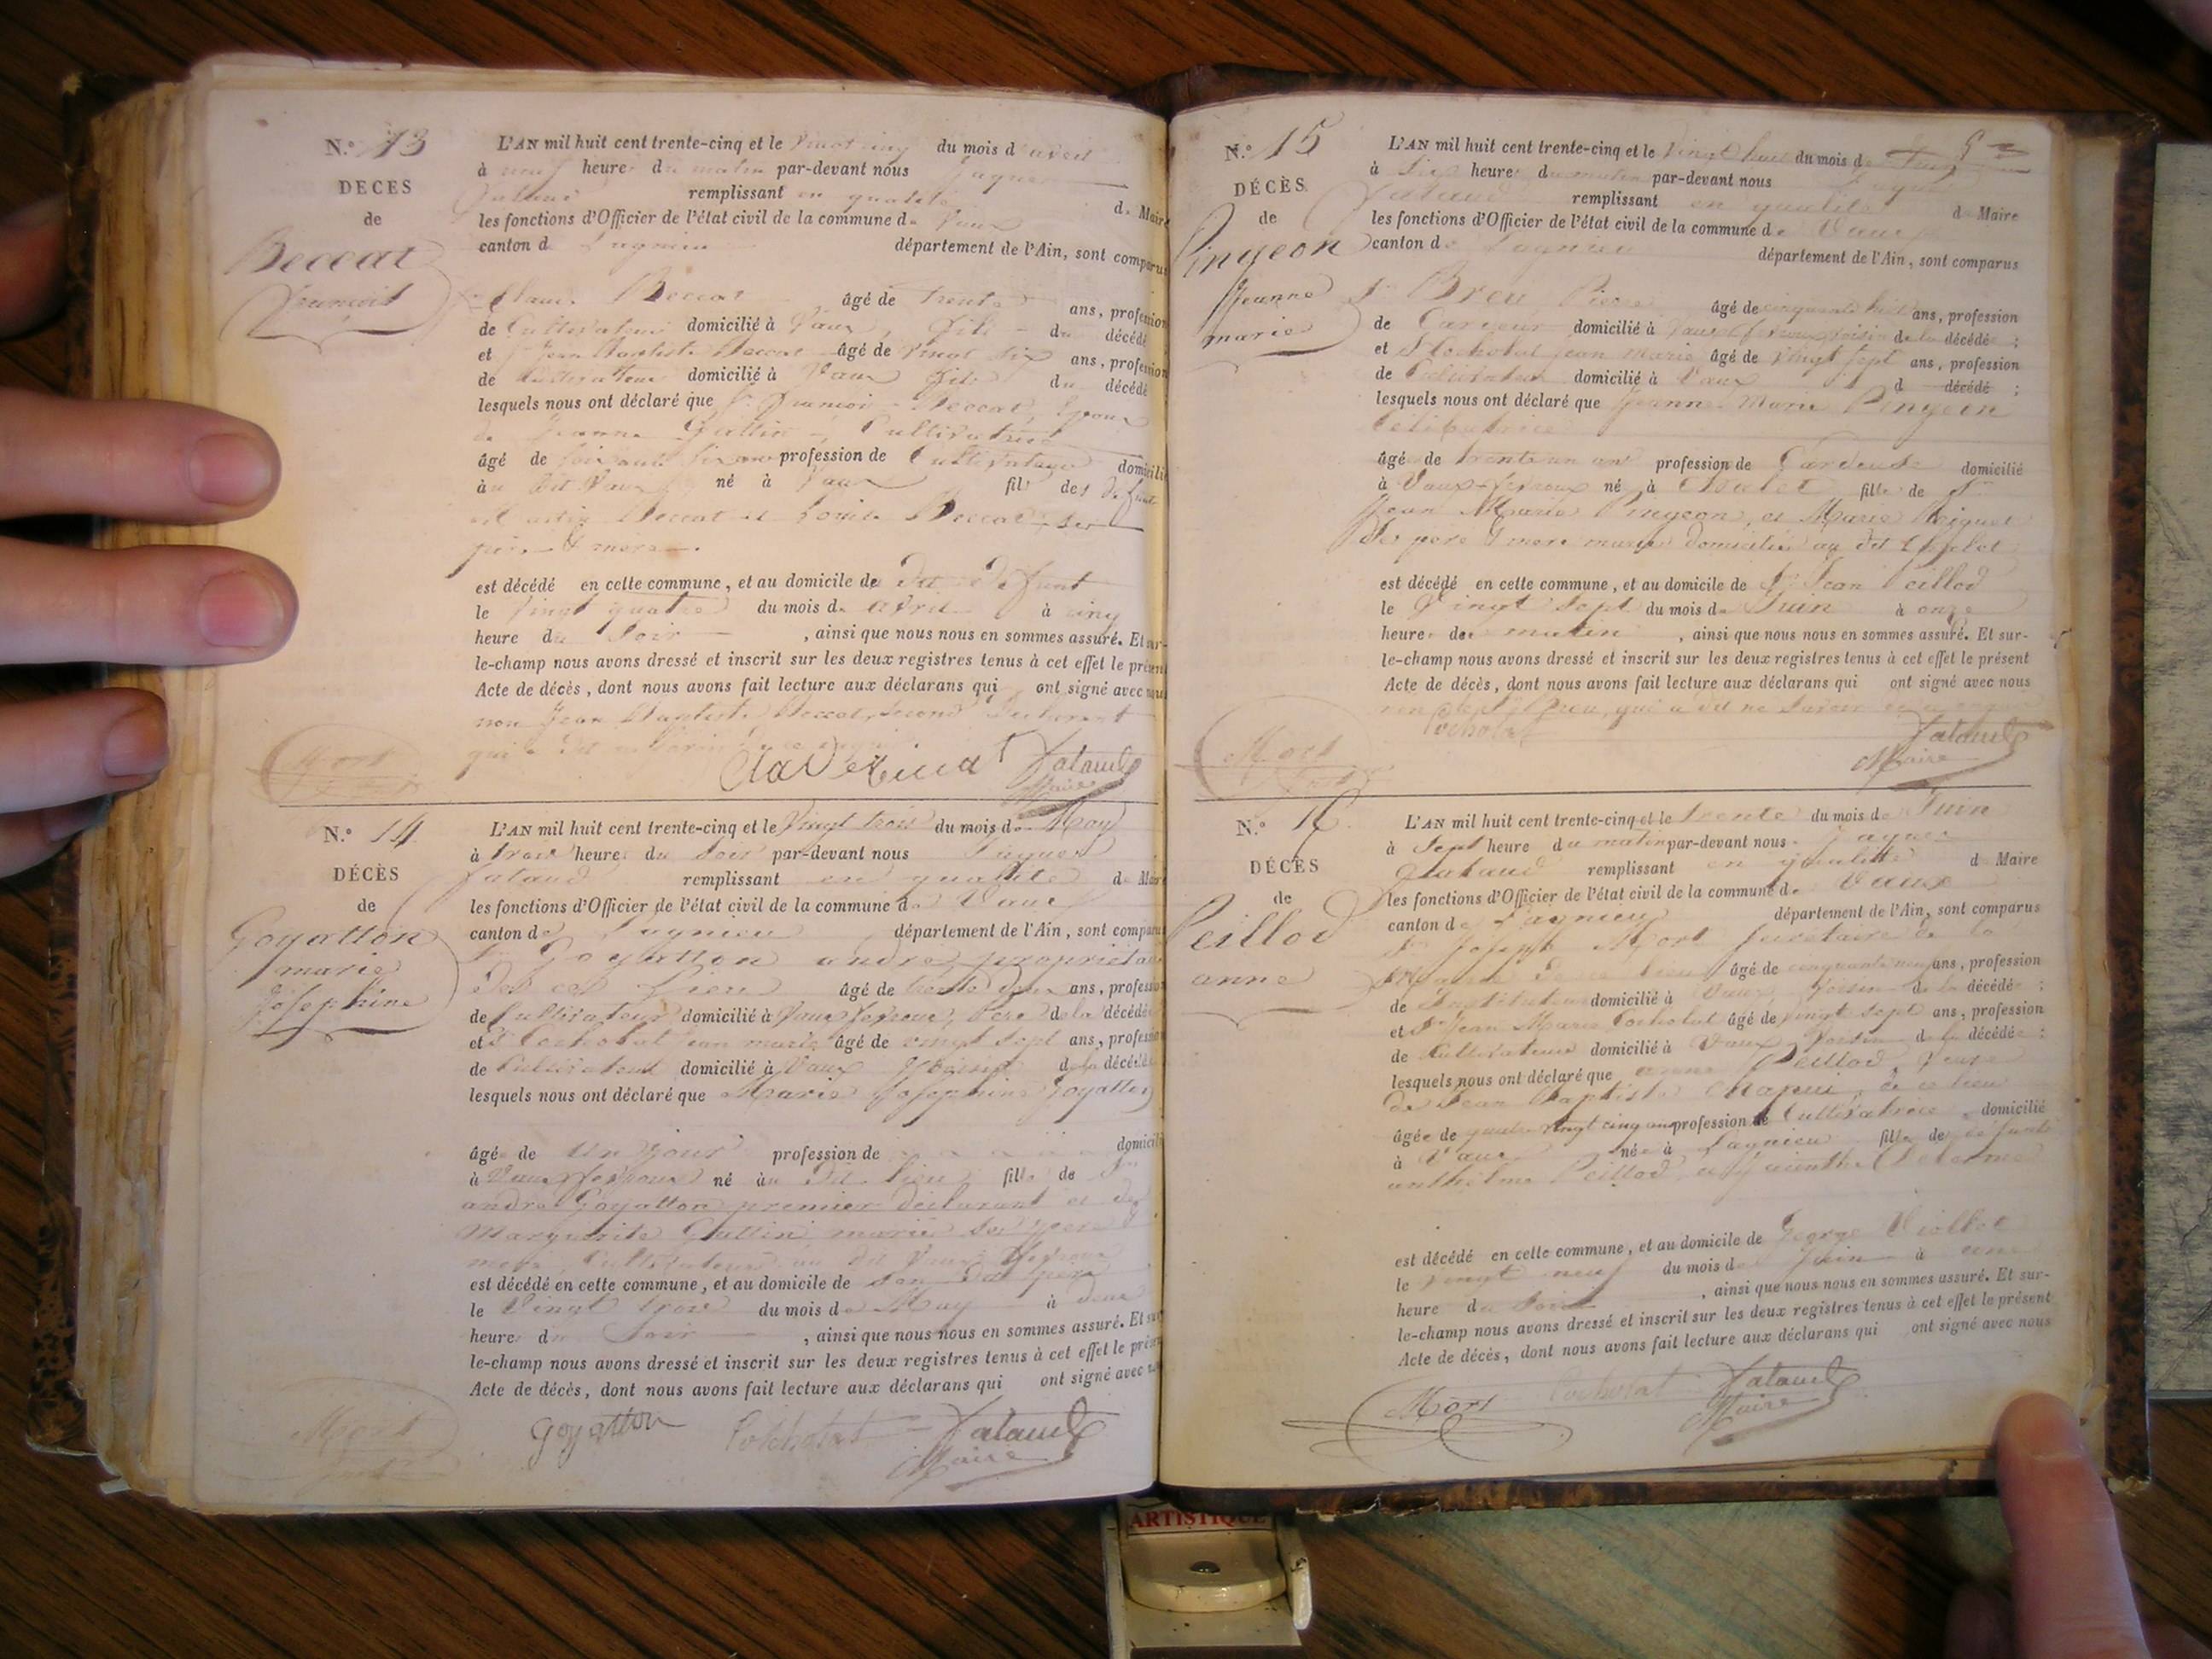 N.° 13
DECES
de
Beccat
francois
L'AN mil huit cent trente-cinq et le vingt cinq du mois d'avril
à neuf heures du matin par-devant nous Jaques
remplissant en qualité de Maire
les fonctions d'Officier de l'état civil de la commune de Vaux
canton de Lagnieu département de l'Ain, sont comparus
Claude Beccat âgé de trente ans, profession
de Cultivateur domicilié à Vaux, fils du décédé
et Jean Baptiste Beccat âgé de vingt six ans, profession
de Cultivateur domicilié à Vaux fils du décédé
lesquels nous ont déclaré que francois Beccat, Epoux
de Jeanne Gallin, Cultivatrice
âgé de soixante six ans profession de Cultivateur domicilié
au dit Vaux né à Vaux fils des defunts
Beccat et Louise Beccat, ses
père & mère.
est décédé en cette commune, et au domicile du dit defunt
le vingt quatre du mois de avril à cinq
heure du soir, ainsi que nous nous en sommes assuré. Et sur-
le-champ nous avons dressé et inscrit sur les deux registres tenus à cet effet le présent
Acte de décès, dont nous avons fait lecture aux déclarans qui ont signé avec nous
non Jean Baptiste Beccat, second declarant
qui a dit
Mort
Maire
N.° 14
DÉCÈS
de
Goyatton
marie
Josephine
L'AN mil huit cent trente-cinq et le vingt trois du mois de May
à trois heures du soir par-devant nous Jaques
remplissant en qualité de Maire
les fonctions d'Officier de l'état civil de la commune de Vaux
canton de Lagnieu département de l'Ain, sont comparus
Sr Goyatton andré propriétaire
de ce lieu âgé de trente deux ans, profession
de Cultivateur domicilié à Vaux fevroux, Père de la décédé
et Sr Cocholat jean marie âgé de vingt sept ans, profession
de Cultivateur domicilié à Vaux Voisin de la décédé
lesquels nous ont déclaré que Marie Josephine Goyatton
âgé de un jour profession de domicilié
à Vaux fevroux né au dit lieu fille de Sr
andré Goyatton premier declarant et de
Marguerite Gallin mariés ses père &
mère, Cultivateurs au dit Vaux fevroux
est décédé en cette commune, et au domicile de son dit père
le Vingt trois du mois de May à deux
heures du soir, ainsi que nous nous en sommes assuré. Et sur-
le-champ nous avons dressé et inscrit sur les deux registres tenus à cet effet le présent
Acte de décès, dont nous avons fait lecture aux déclarans qui ont signé avec nous
Mort
goyatton Cocholat
Maire
N.° 15
DÉCÈS
de
Pingeon
Jeanne
marie
L'AN mil huit cent trente-cinq et le vingt huit du mois de Juin
à six heures du matin par-devant nous Jaques
remplissant en qualité de Maire
les fonctions d'Officier de l'état civil de la commune de Vaux
canton de Lagnieu département de l'Ain, sont comparus
Sr Breu Pierre âgé de cinquante huit ans, profession
de domicilié à Vaux fevroux voisin de la décédé;
et Sr Cocholat jean marie âgé de vingt sept ans, profession
de Cultivateur domicilié à Vaux d décédé;
lesquels nous ont déclaré que Jeanne Marie Pingeon
Celibatrice
âgé de trente un ans profession de Cardeuse domicilié
à Vaux fevroux né à Chalet fille de Sr
Jean Marie Pingeon, et Marie
ses père & mère mariés domiciliés au dit Chalet
est décédé en cette commune, et au domicile de Sr Jean Peillod
le Vingt sept du mois de Juin à onze
heures de matin, ainsi que nous nous en sommes assuré. Et sur-
le-champ nous avons dressé et inscrit sur les deux registres tenus à cet effet le présent
Acte de décès, dont nous avons fait lecture aux déclarans qui ont signé avec nous
non Breu, qui a dit ne savoir
Cocholat
Mort
Maire
N.° 16
DÉCÈS
de
Peillod
anne
L'AN mil huit cent trente-cinq et le trente du mois de Juin
à sept heures du matin par-devant nous Jaques
remplissant en qualité de Maire
les fonctions d'Officier de l'état civil de la commune de Vaux
canton de Lagnieu département de l'Ain, sont comparus
Sr Joseph Mort Secretaire de la
Mairie de ce lieu âgé de cinquante neuf ans, profession
de Instituteur domicilié à Vaux, Voisin de la décédé;
et Sr Jean Marie Cocholat âgé de vingt sept ans, profession
de Cultivateur domicilié à Vaux, Voisin de la décédé;
lesquels nous ont déclaré que anne Peillod, veuve
de Jean Baptiste Chapui, de ce lieu
âgée de quatre vingt cinq ans profession de Cultivatrice domicilié
à Vaux née à Lagnieu fille de defunts
anthelme Peillod, et
est décédé en cette commune, et au domicile de George Viollet
le vingt neuf du mois de Juin à une
heure du soir, ainsi que nous nous en sommes assuré. Et sur-
le-champ nous avons dressé et inscrit sur les deux registres tenus à cet effet le présent
Acte de décès, dont nous avons fait lecture aux déclarans qui ont signé avec nous
Mort Cocholat
Maire
ARTISTIQUE